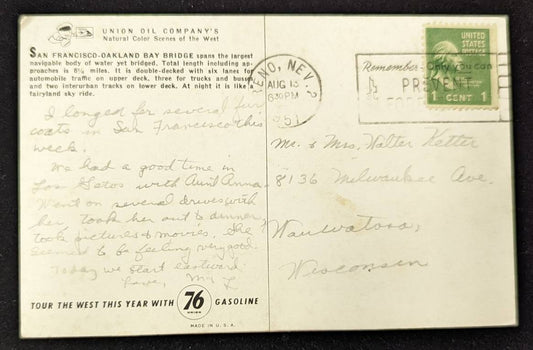 UNION OIL COMPANY'S
Natural Color Scenes of the West
SAN FRANCISCO-OAKLAND BAY BRIDGE spans the largest
navigable body of water yet bridged. Total length including ap-
proaches is 8¼ miles. It is double-decked with six lanes for
automobile traffic on upper deck, three for trucks and busses
and two interurban tracks on lower deck. At night it is like a
fairyland sky ride.
I longed for several fur
coats in San Francisco this
week!
We had a good time in
Los Gatos with Aunt Anna.
Went on several drives with
her, took her out to dinner,
took pictures & movies. She
seemed to be feeling very good.
Today we start eastward.
Love,
TOUR THE WEST THIS YEAR WITH 76 UNION GASOLINE
MADE IN U.S.A.
RENO, NEV. 2
AUG 13
630PM
1951
Remember-Only you can
PREVENT
UNITED
STATES
POSTAGE
1 CENT 1
Mr. & Mrs. Walter Ketter
8136 Milwaukee Ave.
Wauwatosa,
Wisconsin